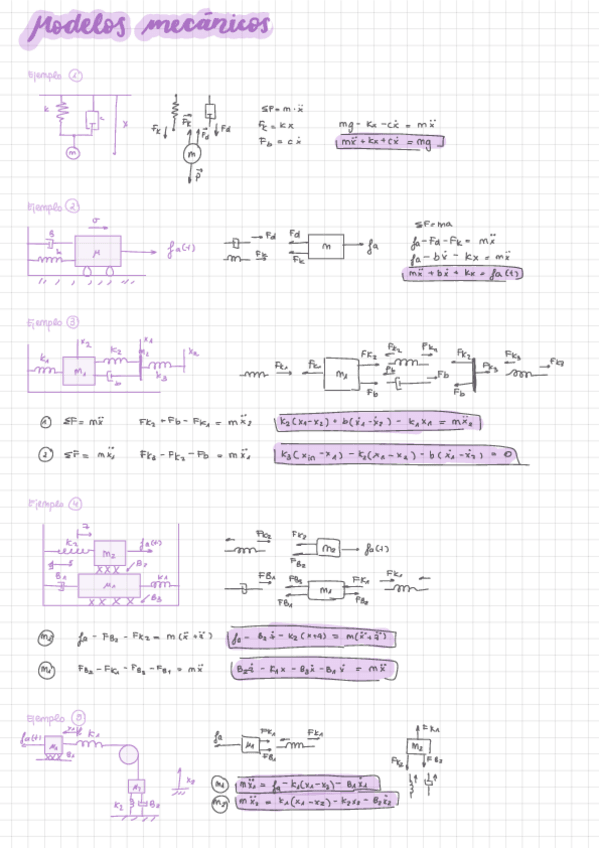 Modelos mecánicos
Ejemplo 1
k
c
x
m
Fk
Fk
Fd
Fd
m
P
ΣF = m·ẍ
Fk = kx
Fb = cẋ
mg - kx - cẋ = mẍ
mẍ + kx + cẋ = mg
Ejemplo 2
v
B
k
M
fa(t)
Fd
Fk
Fd
Fk
m
fa
ΣF = ma
fa - Fd - Fk = mẍ
fa - bẋ - kx = mẍ
mẍ + bẋ + kx = fa(t)
Ejemplo 3
k1
x2
m1
k2
b
x1
k3
Fk1
Fk1
m1
Fk2
Fb
Fk2
Fb
Fb
Fk2
Fb
Fk3
Fk3
1 ΣF = mẍ Fk2 + Fb - Fk1 = mẍ2 k2(x1-x2) + b(ẋ1-ẋ2) - k1x1 = mẍ2
2 ΣF = mẍ1 Fk3 - Fk2 - Fb = mẍ1 k3(xin - x1) - k2(x1-x2) - b(ẋ1-ẋ2) = 0
Ejemplo 4
z
k2
m2
fa(t)
B2
B1
M1
k1
B3
Fk2
Fk2
m2
fa(t)
FB2
FB1
FB1
m1
Fk1
Fk1
m2 fa - FB2 - Fk2 = m(ẍ+q̈) fa - B2q̇ - k2(x+q) = m(ẍ+q̈)
m1 FB2 - Fk1 - FB3 - FB1 = mẍ B2q̇ - k1x - B3ẋ - B1ẋ = mẍ
Ejemplo 5
fa(t)
k1
B1
k2
B2
x2
fa
M1
Fk1
FB1
Fk1
Fk1
M2
Fk2
FB2
m1 mẍ1 = fa - k1(x1-x2) - B1ẋ1
m2 mẍ2 = k1(x1-x2) - k2x2 - B2ẋ2